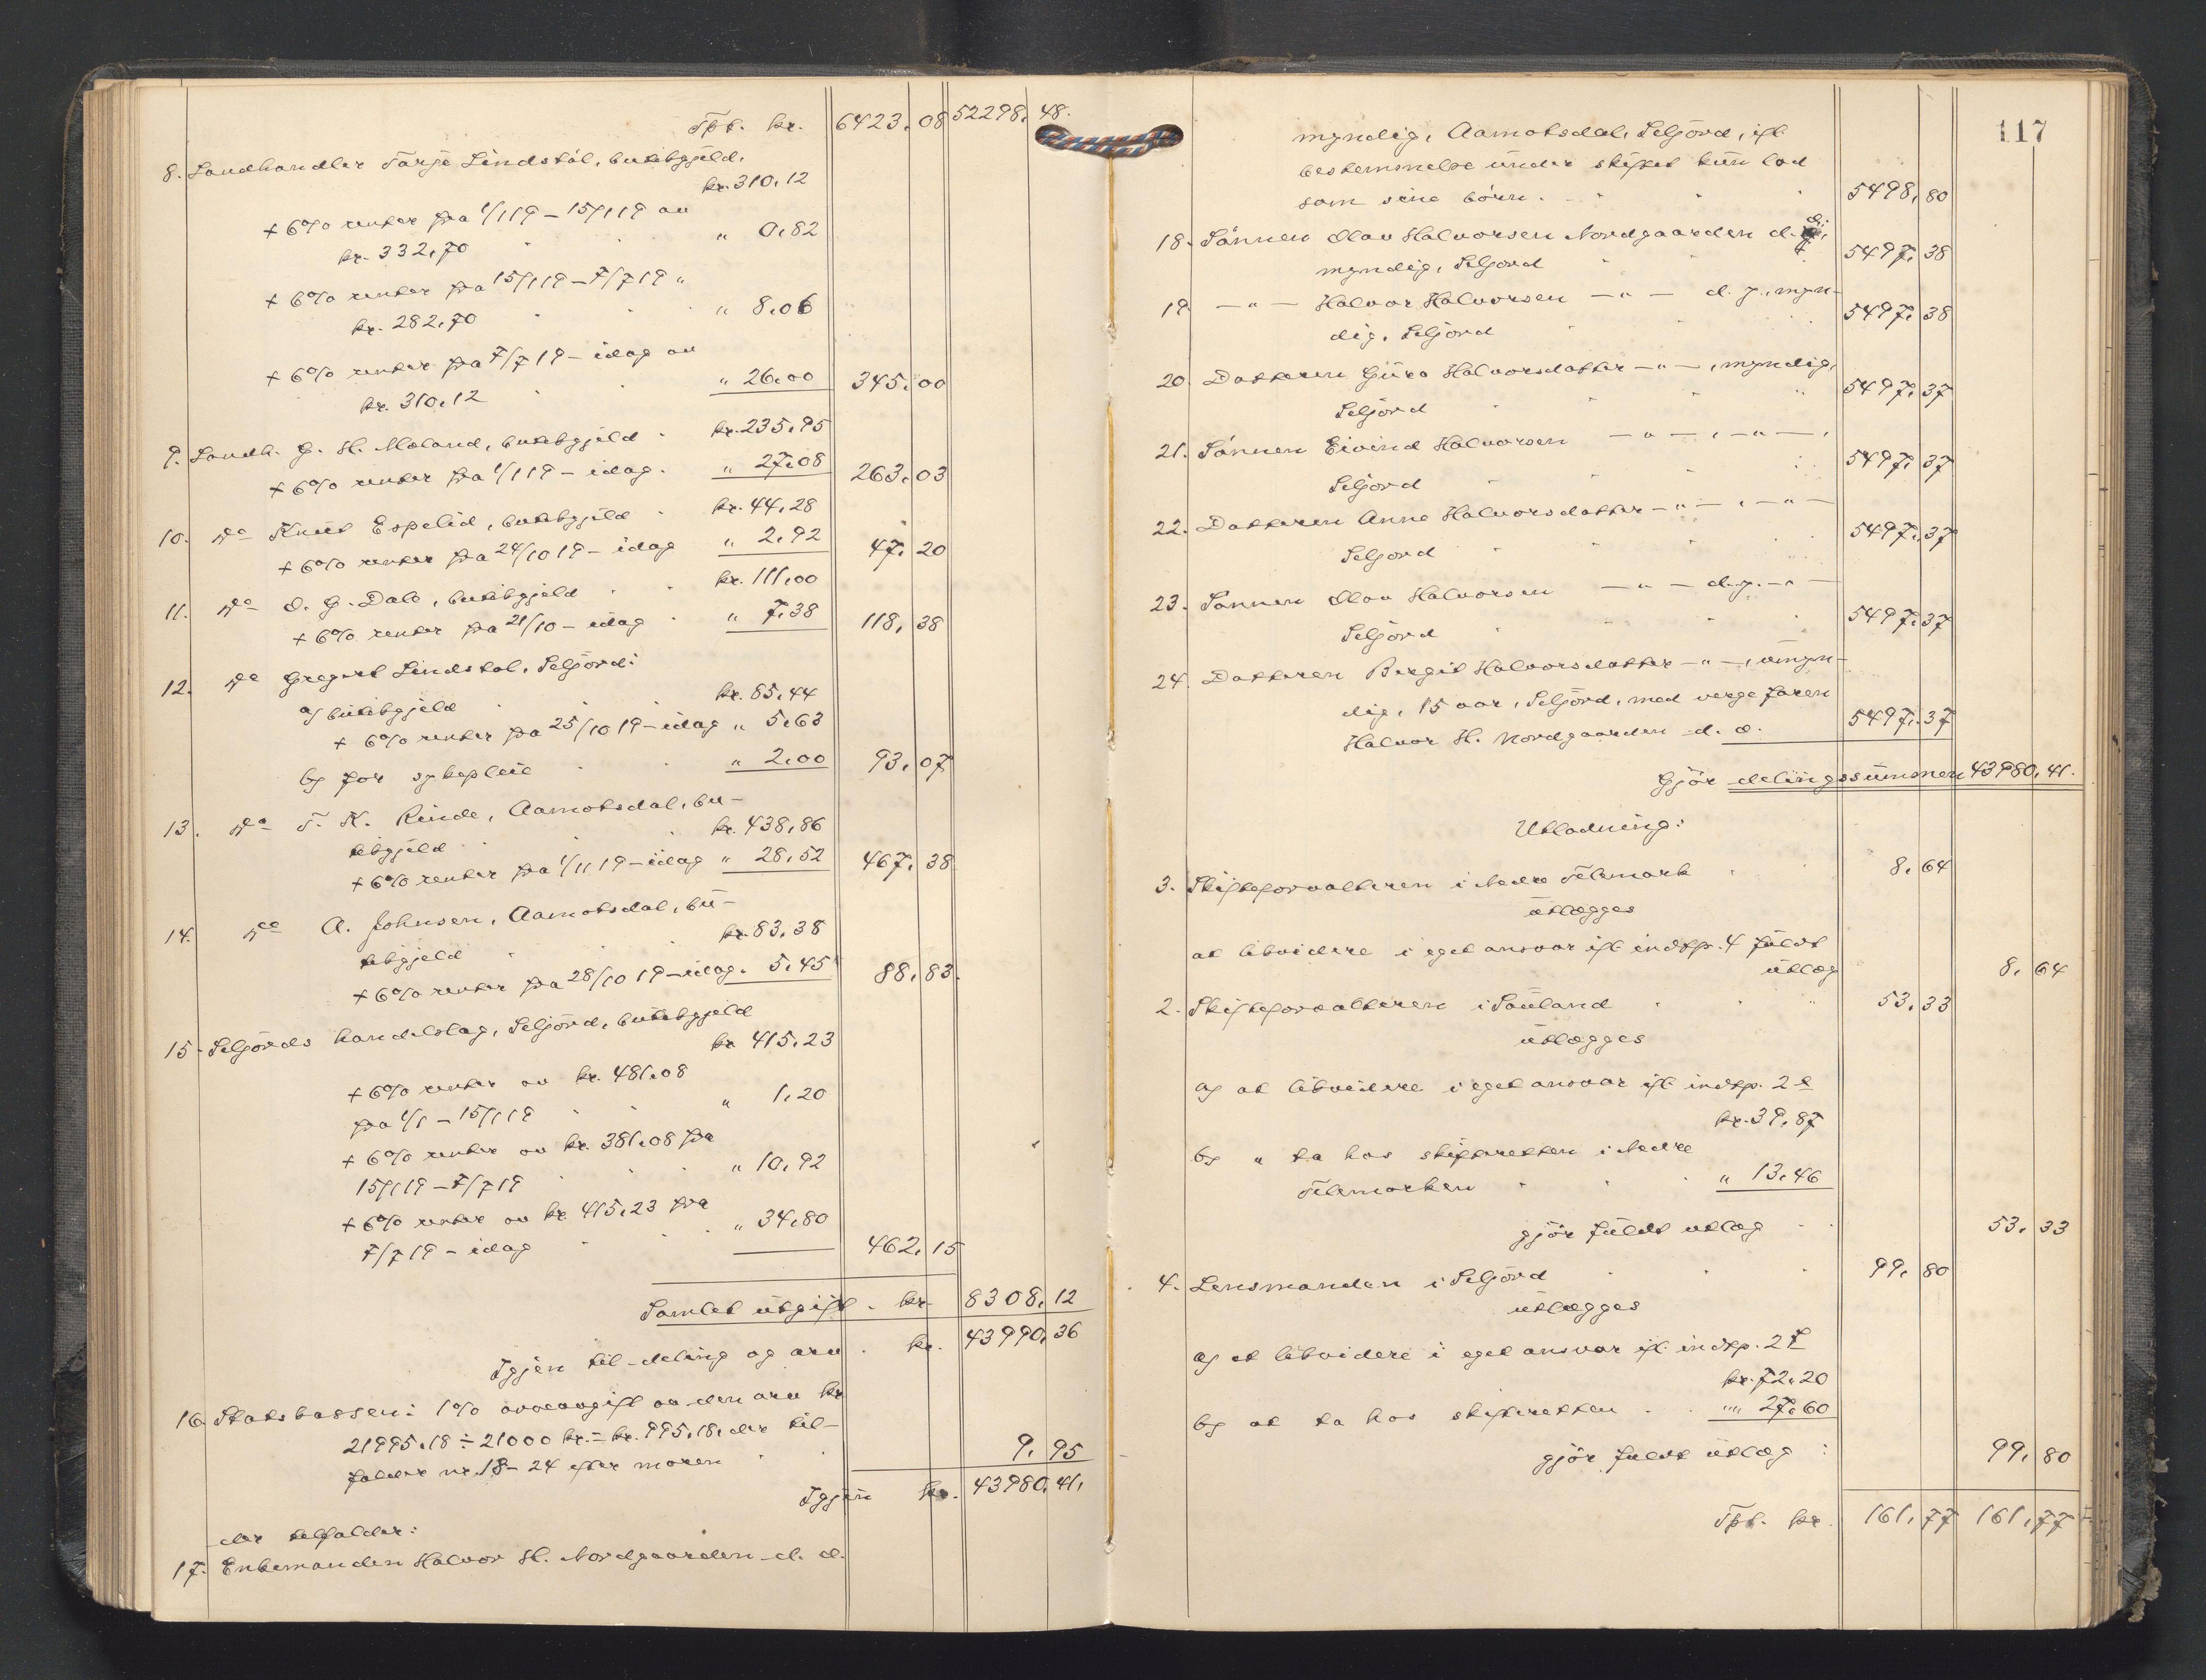 Tpt. kr. 6423,08 52298,48.
8. Landhandler Tarje Lindstöl, butikgjeld.
kr. 310,12
+ 6% renter fra 1/1 19 – 15/1 19 av
kr. 332,70 " 0,82
+ 6% renter fra 15/1 19 – 7/7 19 "
kr. 282,70 " 8,06
+ 6% renter fra 7/7 19 – idag av
kr. 310,12 " 26,00 345,00
9. Landh. G. H. Moland, butikgjeld kr. 235,95
+ 6% renter fra 1/1 19 – idag. " 27,08 263,03
10. do Knut Espelid, butikgjeld kr. 44,28
+ 6% renter fra 24/10 19 – idag " 2,92 47,20
11. do O. G. Dale, butikgjeld kr. 111,00
+ 6% renter fra 21/10 – idag " 7,38 118,38
12. do Gregert Lindstöl, Seljord:
a) butikgjeld kr. 85,44
+ 6% renter fra 25/10 19 – idag " 5,63
b) for sykepleie " 2,00 93,07
13. do T. K. Rinde, Aamotsdal, bu-
tikgjeld kr. 438,86
+ 6% renter fra 1/11 19 – idag " 28,52 467,38
14. do A. Johnsen, Aamotsdal, bu-
tikgjeld kr. 83,38
+ 6% renter fra 28/10 19 – idag. 5,45 88,83.
15. Seljords handelslag, Seljord, butikgjeld
kr 415,23
+ 6% renter av kr. 481,08
fra 1/1 – 15/1 19 " 1,20
+ 6% renter av kr. 381,08 fra
15/1 19 – 7/7 19 " 10,92
+ 6% renter av kr. 415,23 fra
7/7 19 – idag " 34,80 462,15
Samlet utgift. kr. 8308,12
Igjen til deling og arv. kr. 43990,36
16. Statskassen: 1% arveavgift av den arv kr
21995,18 ÷ 21000 kr. = kr. 995,18, der til-
falder nr. 18 – 24 efter moren 9,95
Igjen kr. 43980,41,
der tilfalder:
17. Enkemanden Halvor H. Nordgaarden d. æ.
117
myndig, Aamotsdal, Seljord, ifl.
bestemmelse under skiftet kun lod
som sine börn. 5498,80
18. Sönnen Olav Halvorsen Nordgaarden d. æ.,
myndig, Seljord 5497,38
19. —"— Halvor Halvorsen —"— d. y., myn-
dig, Seljord 5497,38
20. Datteren Guro Halvorsdatter —"—, myndig,
Seljord 5497,37
21. Sönnen Eivind Halvorsen —"—, —"—,
Seljord 5497,37
22. Datteren Anne Halvorsdatter —"—, —"—
Seljord 5497,37
23. Sönnen Olav Halvorsen —"— d. y. —"—
Seljord 5497,37
24. Datteren Birgit Halvorsdatter —"—, umyn-
dig, 15 aar, Seljord, med verge faren
Halvor H. Nordgaarden d. æ. 5497,37
Gjör delingssummen 43980,41.
Utlodning:
3. Skifteforvalteren i Nedre Telemark 8,64
utlægges
at likvidere i eget ansvar ifl. indtp. 4 fuldt
utlæg 8,64
2. Skifteforvalteren i Sauland 53,33
utlægges
a) at likvidere i eget ansvar ifl. indtp. 2 e
kr. 39,87
b) " ta hos skifteretten i Nedre
Telemarken " 13,46
gjör fuldt utlæg 53,33
4. Lensmanden i Seljord 99,80
utlægges
a) at likvidere i eget ansvar ifl. indtp. 2 f
kr. 72,20
b) at ta hos skifteretten "" 27,60
gjör fuldt utlæg : 99,80
Tpt. kr. 161,77 161,77